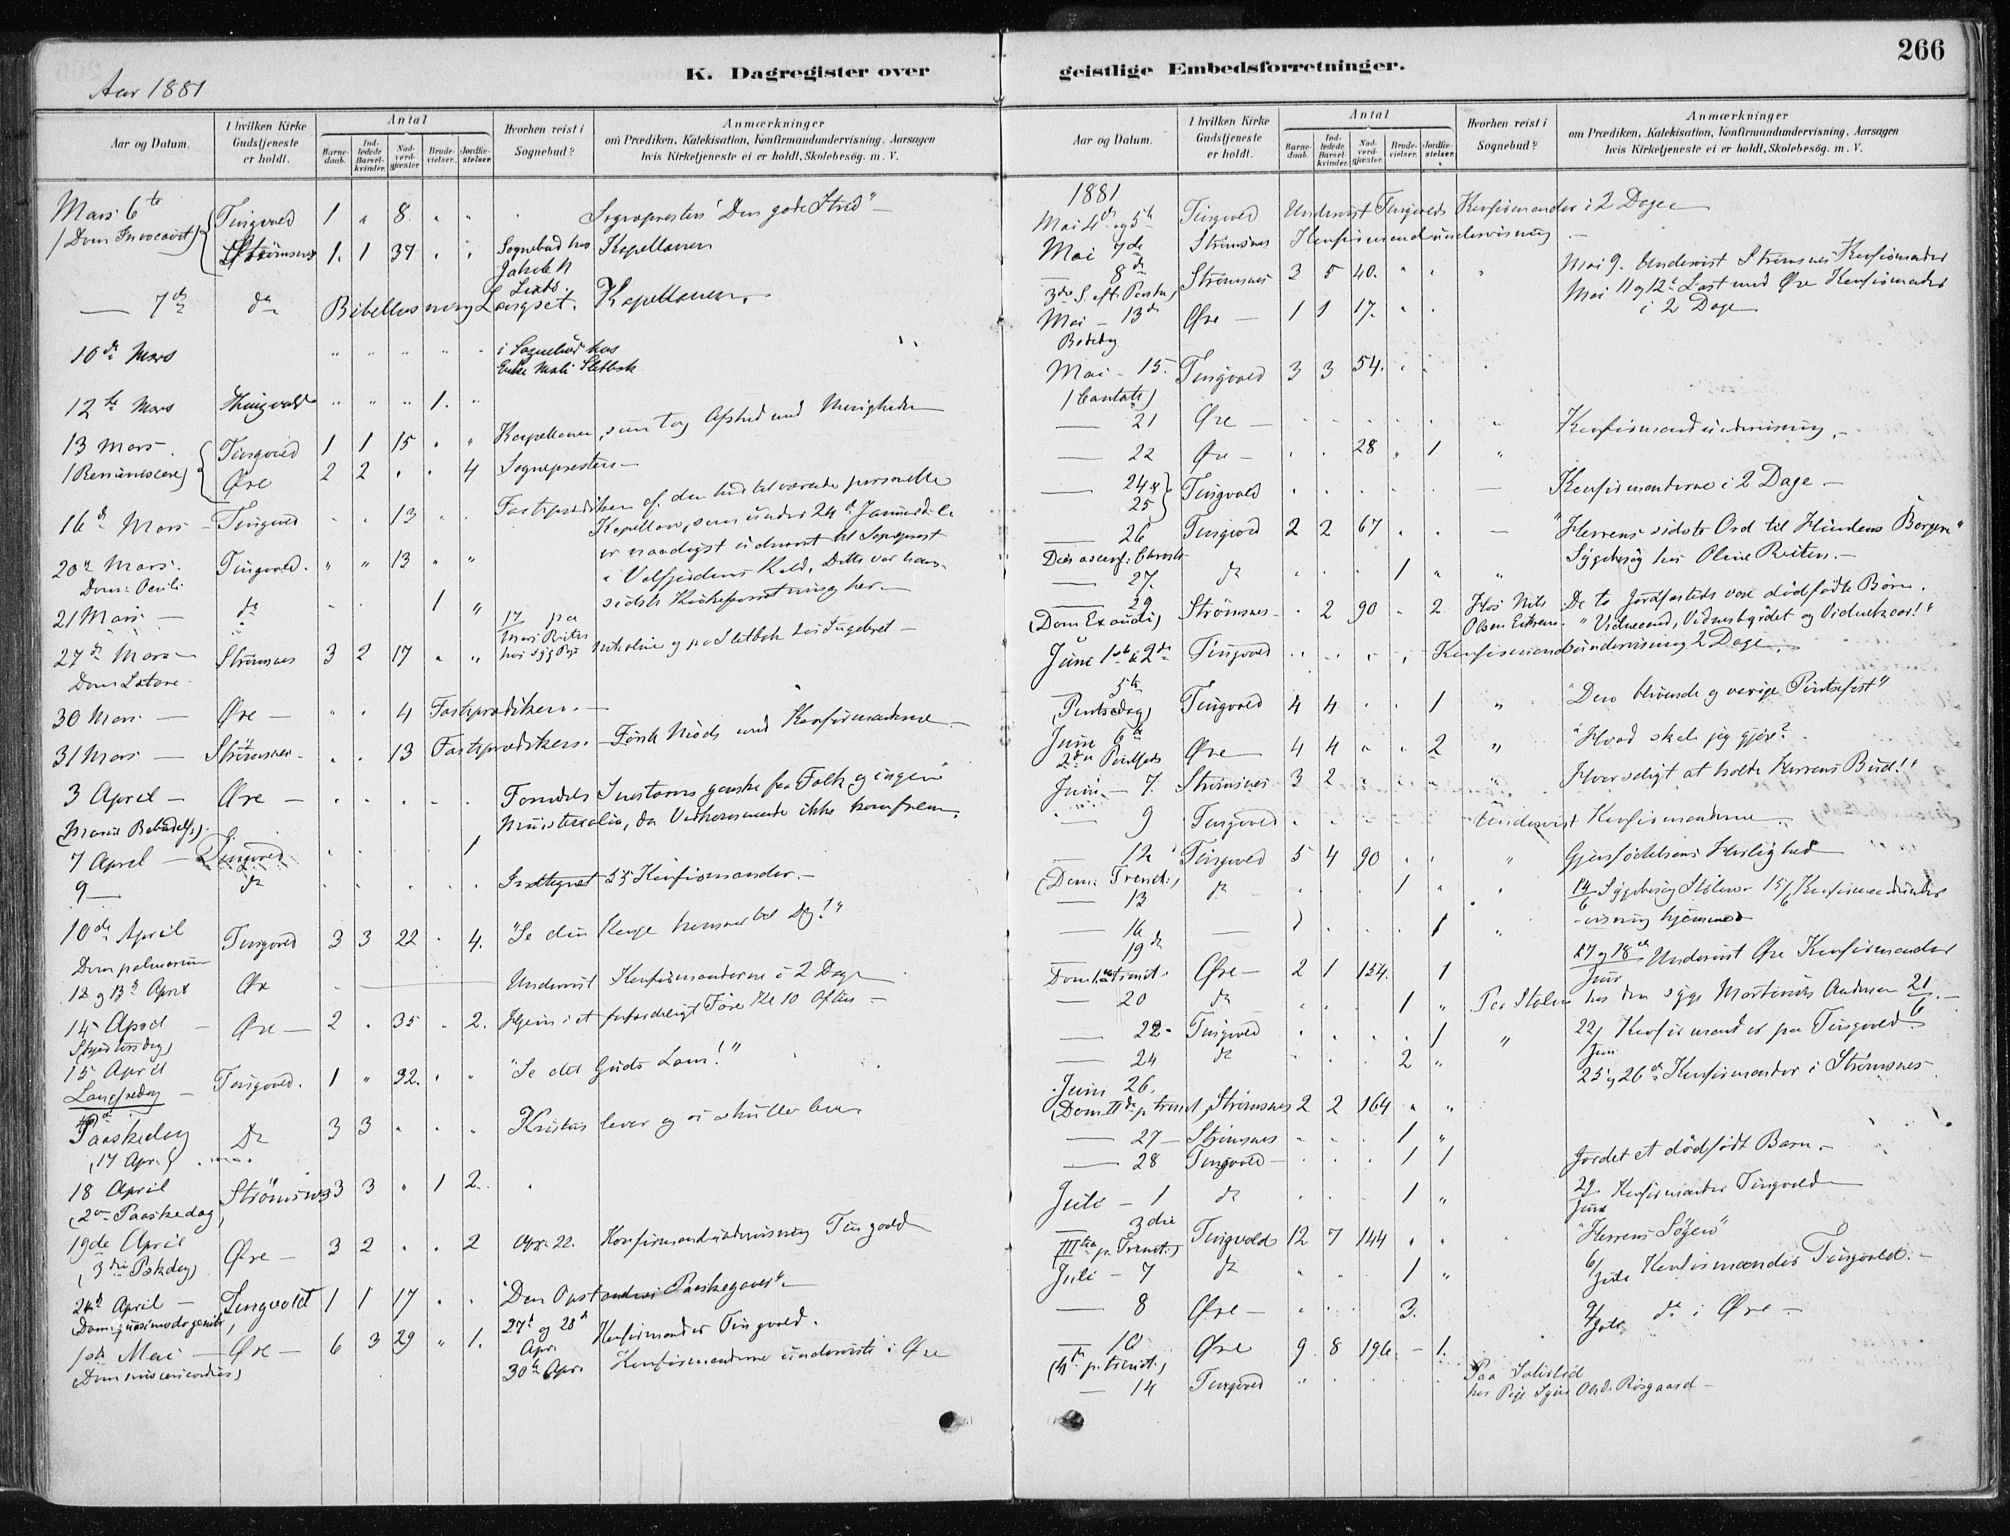 266
K. Dagregister over geistlige Embedsforretninger.
Aar 1881
Aar og Datum.
I hvilken Kirke Gudstjeneste er holdt.
Antal
Barne-daab.
Ind-ledede Barsel-kvinder.
Nad-verd-gjæster.
Brude-vielser.
Jordfæ-stelser.
Hvorhen reist i Sognebud?
Anmærkninger
om Prædiken, Katekisation, Konfirmandundervisning, Aarsagen
hvis Kirketjeneste ei er holdt, Skolebesøg. m. V.
Mars 6te Tingvold 1 " 8 " " Sognepresten "Den gode Strid" —
(Dom Invocavit) Strømsnes 1. 1 37 " " Sognebud hos Kapellanen
Jakob N
— 7de do Bibellæsning Kapellanen.
10de Mars " " " " " i Sognebud hos
12te Mars Thingvold " " " 1. "
13 Mars Tingvold 1 1 15 " " Kapellanen, som tog Afsked med Menigheden
(Reminiscere) Øre 2 2 " " 4 Sognepresten —
16de Mars — Tingvold " " 13 " " Fasteprædiken af den hidtilværende personelle
Kapellan, som under 24de Januar d. A.
er naadigst udnævnt til Sogneprest
20de Mars. Tingvold. " " 13 " " i Velfjordens Kald, Dette var hans
Dom. Oculi sidste Kirkeforretning her —
21 Mars — do " " 1 "
27de Mars — Strømsnes 3 2 17 " "
Dom Lætare
30 Mars — Øre — " " 4 Fasteprædiken. —
31 Mars — Strømsnes " " 13 Fasteprædiken. — Første Møde med Konfirmanderne —
3 April — Øre — " " " " " Formedelst Snestorm ganske faa Folk og ingen
(Mariæ Bebudelse) Ministerialia, da Vedkommende ikke kom frem.
7 April — Tingvold " " " " 1
9 — do " " " " " Indtegnet 35 Konfirmander. —
10de April Tingvold 3 3 22 " 4. "Se din Konge kommer til Dig!"
Dom palmarum
12 og 13de April Øre Underviist Konfirmanderne i 2 Dage
14 April — Øre — 2 " 35 " 2. Hjem i et forfærdeligt Føre Kl 10 Aften —
(Skjærtorsdag)
15 April Tingvold. 1 " 32. " " "Se det Guds Lam!"
Langfredag —
Paaskedag Do 3 3 " " " Kristus lever og vi skulle leve
(17 Apr.)
18 April Strømsnes 3 3 " 1 2.
(2den Paaskedag)
19de April Øre — 3 2 " " 2 Apr. 22. Konfirmandundervisning Tingvold
(3die Pskdag)
24de April — Tingvold 1 1 17 " " "Den Opstandnes Paaskegaver" —
Dom quasimodogeniti 27de og 28de Konfirmander Tingvold.
Apr.
1ste Mai — Øre — 6 3 29 " 1. 30te Apr. Konfirmanderne underviste i Øre
(Dom misericordias)
Aar og Datum.
I hvilken Kirke Gudstjeneste er holdt.
Antal
Barne-daab.
Ind-ledede Barsel-kvinder.
Nad-verd-gjæster.
Brude-vielser.
Jordfæ-stelser.
Hvorhen reist i Sognebud?
Anmærkninger
om Prædiken, Katekisation, Konfirmandundervisning, Aarsagen
hvis Kirketjeneste ei er holdt, Skolebesøg. m. V.
1881
Mai 4de og 5te Tingvold Underviist Tingvolds Konfirmander i 2 Dage
Mai 7de Strømsnes Konfirmandundervisning —
— 8de Strømsnes 3 5 40. " " " Mai 9. Underviist Strømsnes Konfirmander
3die S. eft. Paaske Mai 11 og 12te Læst med Øre Konfirmander
Mai — 13de Øre — 1 1 17. " " i 2 Dage
Bededag
Mai — 15. Tingvold 3 3 54. " " "
(Cantate)
— 21 Øre — " " " " " Konfirmandundervisning —
— 22 Øre — " " 28 " 1 "
— 24 & 25 Tingvold " " " " " — Konfirmanderne i 2 Dage —
— 26 Tingvold 2 2 67 " " — "Herrens sidste Ord til Himlens Borgere"
Dies ascens. Christi Sygebesøg hos Oline Reiten. —
— 27. do " " " 1 " "
— 29 Strømsnes — " 2 90 " 2 Hos Nils De to Jordfæstede vare dødfødte Børn.
(Dom Exaudi) Olsen "Vidnesbyrdet og Vidnekaar!"
Juni 1ste & 2den Tingvold " " " " Konfirmandundervisning 2 Dage
5te Tingvold 4 4 " " 1 " "Den blivende og evige Pintsefest"
(Pintsedag)
Juni 6te Øre — 4 4 " " 2 " "Hvad skal jeg gjøre?"
2den Pintsedag
Juni — 7. Strømsnes 3 2 " " " " Hvor saligt at holde Herrens Bud!"
— 9 Tingvold " " " " Underviist Konfirmanderne.
— 12 Tingvold 5 4 90 " " " Gjenfødelsens Herlighed
(Dom. Trinit.)
— 13 do " " " 1 " " 14/6 Sygebesøg Stølen — 15/6 Konfirmandunder-
— 16 — " " " " 1 " -visning hjemme
— 19de Øre — 2 1 154. " 1 17 og 18de Juni Underviist Øre Konfirmander
Dom 1ste p trinit.
— 20 do " " " 1 " Paa Stølen hos den syge Andersen 21/6 —
— 22 — Tingvold " " " " 1 " 22/Juni Konfirmander paa Tingvold
— 24 do " " " 2 " 25 og 26de Konfirmander i Strømsnes
Juni 26.
(Dom IIde p. trinit.) Strømsnes 2 2 164 " "
— 27 — Strømsnes " " " 1 "
— 28 Tingvold — " " " 1 1 Jordet et dødfødt Barn —
Juli — 1 do " " " 1 " 29/Juni Konfirmander Tingvold
— 3die Tingvold 12 7 144 " " "Herrens Søgen"
IIItia p. Trinit.
Juli — 7 do " " " 1 " 6/Juli Konfirmander Tingvold. —
— 8 Øre — " " " 3. 9/Juli do i Øre —
— 10 Øre 9 8 196. — 1.
(4de p. trinit.)
— 14 Tingvold " " " " " Paa
hos Pige